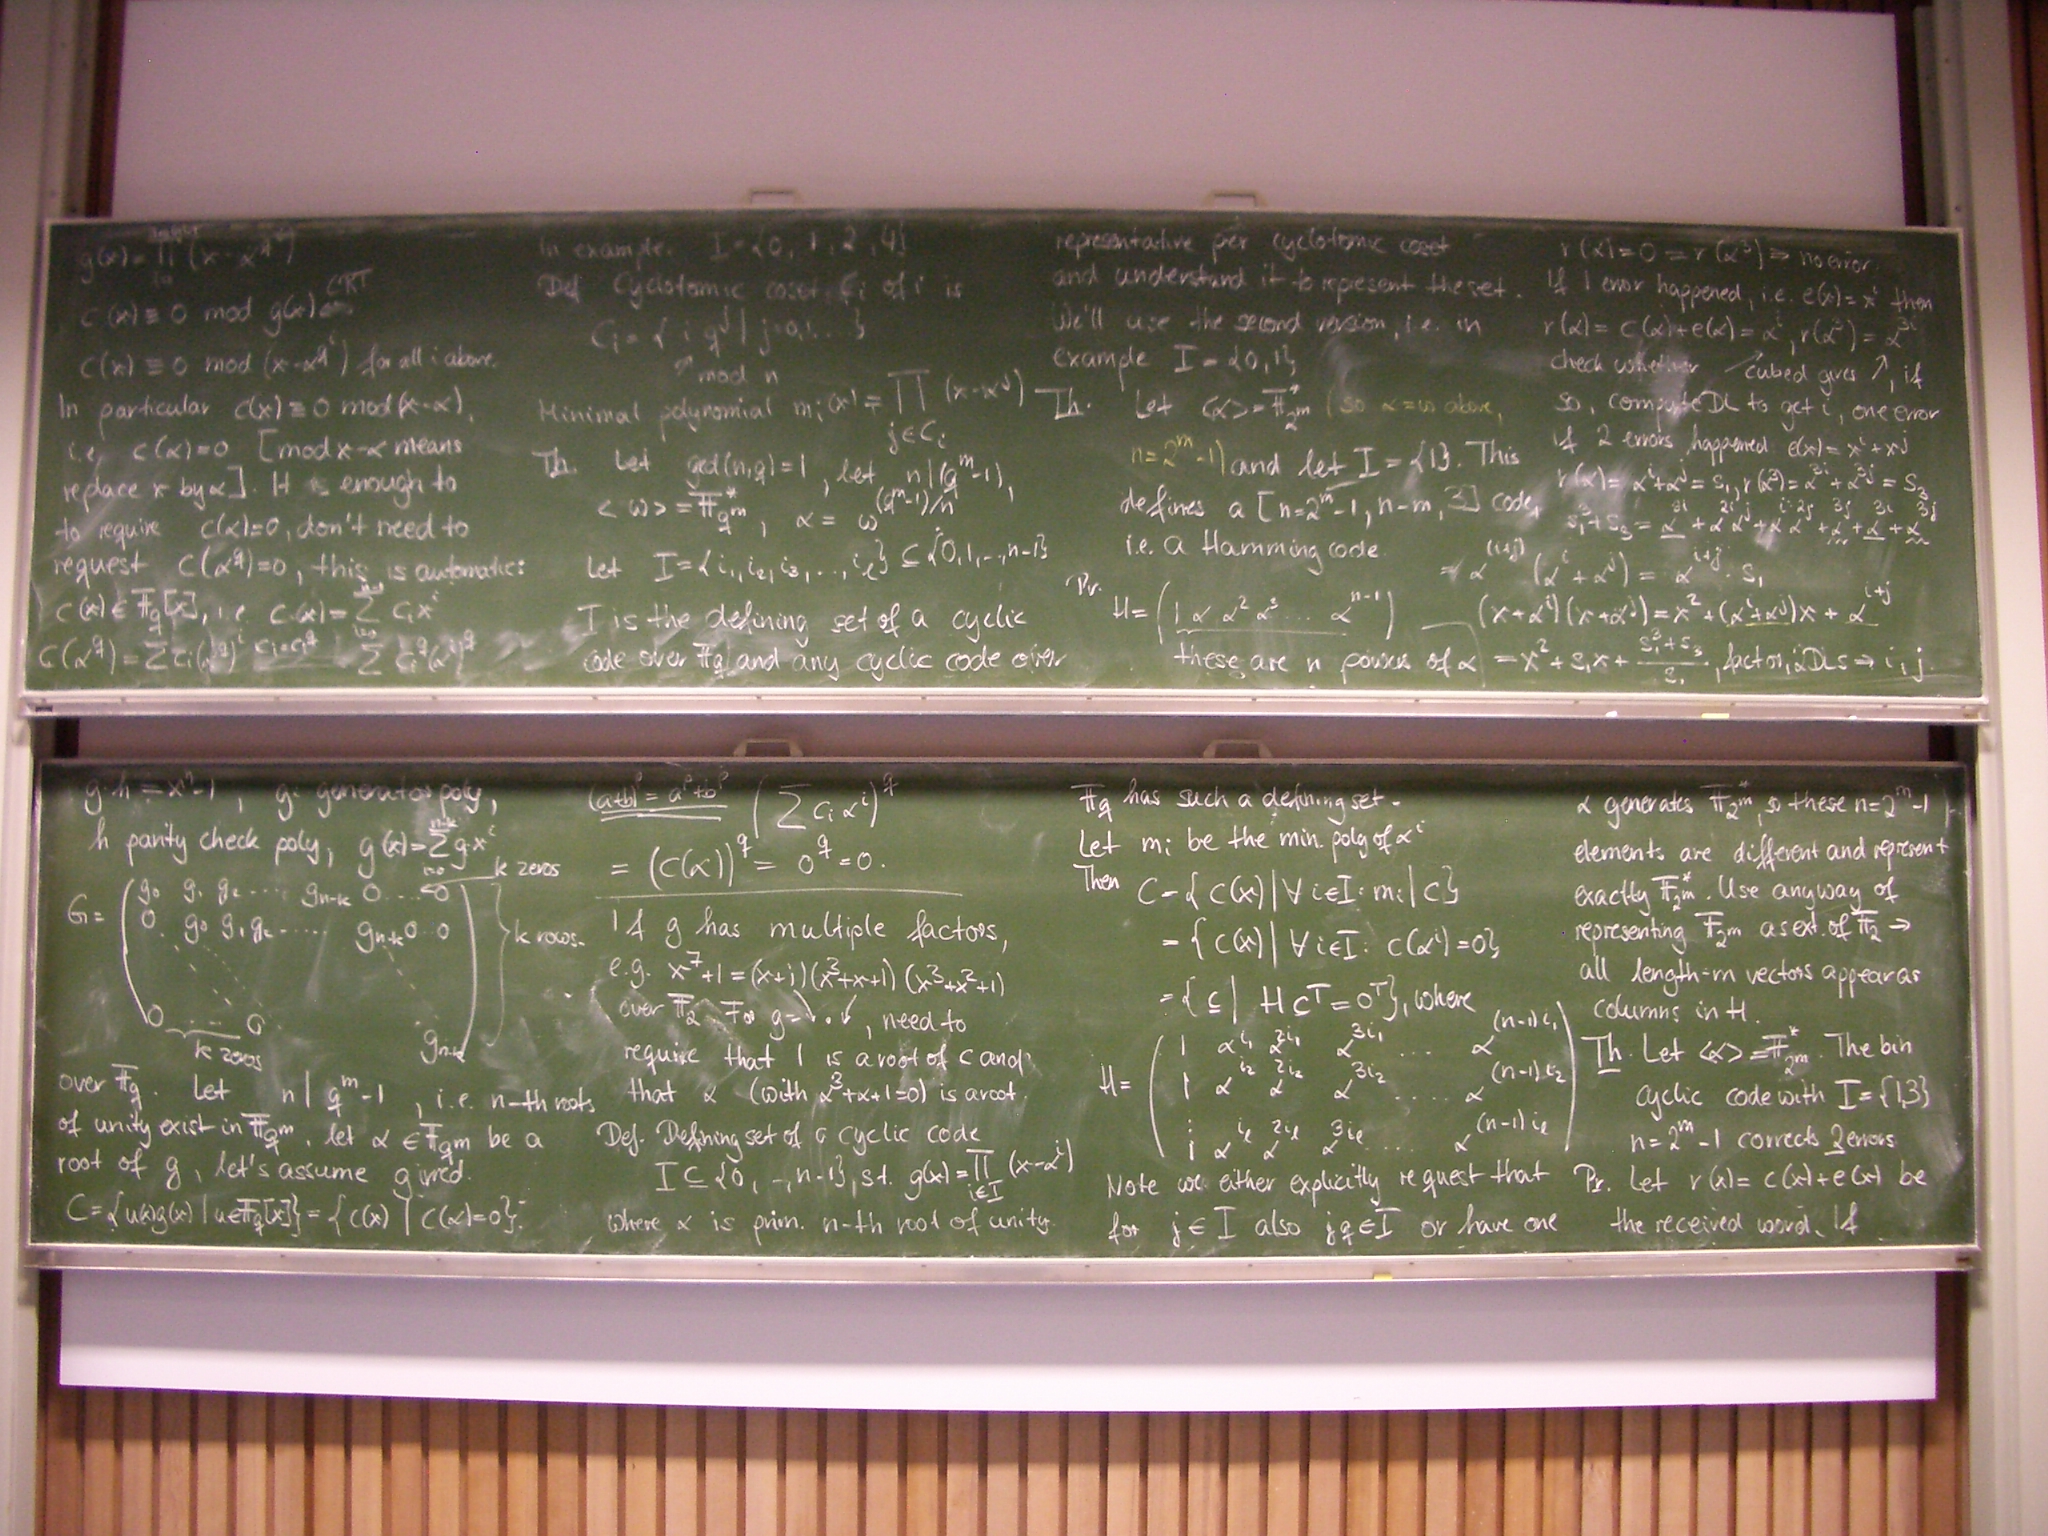 g(x) = ∏ (x - α^{q^i})
c(x) ≡ 0 mod g(x) CRT
c(x) ≡ 0 mod (x-α^{q^i}) for all i above.
In particular c(x) ≡ 0 mod (x-α),
i.e. c(α)=0 [mod x-α means
replace x by α]. It is enough to
to require c(α)=0, don't need to
request c(α^q)=0, this is automatic:
c(x) ∈ F_q[x], i.e. c(x) = Σ c_i x^i
c(α^q) = Σ c_i (α^q)^i c_i=c_i^q Σ c_i^q (α^i)^q
In example. I = {0, 1, 2, 4}
Def Cyclotomic coset C_i of i is
C_i = { i q^j | j=0,1,... }
↗ mod n
Minimal polynomial m_i(x) = ∏ (x-α^j)
j∈C_i
Th. Let gcd(n,q)=1, let n|(q^m-1),
<ω> = F_{q^m}^*, α = ω^{(q^m-1)/n}
Let I={i_1, i_2, i_3, ..., i_ℓ} ⊆ {0,1,...,n-1}
I is the defining set of a cyclic
code over F_q and any cyclic code over
representative per cyclotomic coset
and understand it to represent the set.
We'll use the second version, i.e. in
example I = {0,1}
Th. Let <α> = F_{2^m}^* (so α=ω above,
n=2^m-1) and let I = {1}. This
defines a [n=2^m-1, n-m, 3] code,
i.e. a Hamming code.
Pr. H = (1 α α^2 α^3 ... α^{n-1})
these are n powers of α
r(α)=0=r(α^3) ⇒ no error.
If 1 error happened, i.e. e(x)=x^i then
r(α) = c(α)+e(α) = α^i, r(α^3) = α^{3i}
check whether ↗ cubed gives ↗, if
so, compute DL to get i, one error
if 2 errors happened e(x)=x^i+x^j
r(α) = α^i+α^j = s_1, r(α^3)=α^{3i}+α^{3j} = s_3
s_1^3+s_3 = α^{3i}+α^{2i}α^j+α^iα^{2j}+α^{3j}+α^{3i}+α^{3j}
= α^{(i+j)} (α^i+α^j) = α^{i+j} · s_1
(x+α^i)(x+α^j) = x^2+(α^i+α^j)x + α^{i+j}
= x^2+s_1x+ (s_1^3+s_3)/s_1, factor, 2DLs → i,j.
g·h = x^n-1, g: generator poly,
h parity check poly, g(x)=Σ_{i=0}^{n-k} g_i x^i
k zeros
G = ( g_0 g_1 g_2 .... g_{n-k} 0....0
0 g_0 g_1 g_2 ..... g_{n-k} 0..0 } k rows.
0 .... 0 g_{n-k} )
k zeros
over F_q. Let n | q^m-1, i.e. n-th roots
of unity exist in F_{q^m}. let α ∈ F_{q^m} be a
root of g, let's assume g irred.
C={u(x)g(x) | u∈F_q[x]} = {c(x) | c(α)=0}.
(a+b)^p = a^p+b^p (Σ c_i α^i)^q
= (c(α))^q = 0^q = 0.
If g has multiple factors,
e.g. x^7+1=(x+1)(x^3+x+1)(x^3+x^2+1)
over F_2 For g= ↘·↙, need to
require that 1 is a root of c and
that α (with α^3+α+1=0) is a root.
Def. Defining set of a cyclic code
I ⊆ {0,..,n-1}, st. g(x)=∏_{i∈I} (x-α^i)
where α is prim. n-th root of unity.
F_q has such a defining set.
Let m_i be the min. poly of α^i
Then C = { c(x) | ∀ i∈I: m_i | c}
= { c(x) | ∀ i∈I: c(α^i)=0}
= { c | H c^T=0^T}, where
H = ( 1 α^{i_1} α^{2i_1} α^{3i_1} .... α^{(n-1)i_1}
1 α^{i_2} α^{2i_2} α^{3i_2} ..... α^{(n-1)i_2}
⋮
1 α^{i_ℓ} α^{2i_ℓ} α^{3i_ℓ} .... α^{(n-1)i_ℓ} )
Note we either explicitly request that
for j∈I also jq∈I or have one
α generates F_{2^m}^*, so these n=2^m-1
elements are different and represent
exactly F_{2^m}^*. Use any way of
representing F_{2^m} as ext. of F_2 →
all length-m vectors appear as
columns in H.
Th. Let <α>=F_{2^m}^*. The bin
cyclic code with I={1,3}
n=2^m-1 corrects 2 errors
Pr. Let r(x)= c(x)+e(x) be
the received word. If